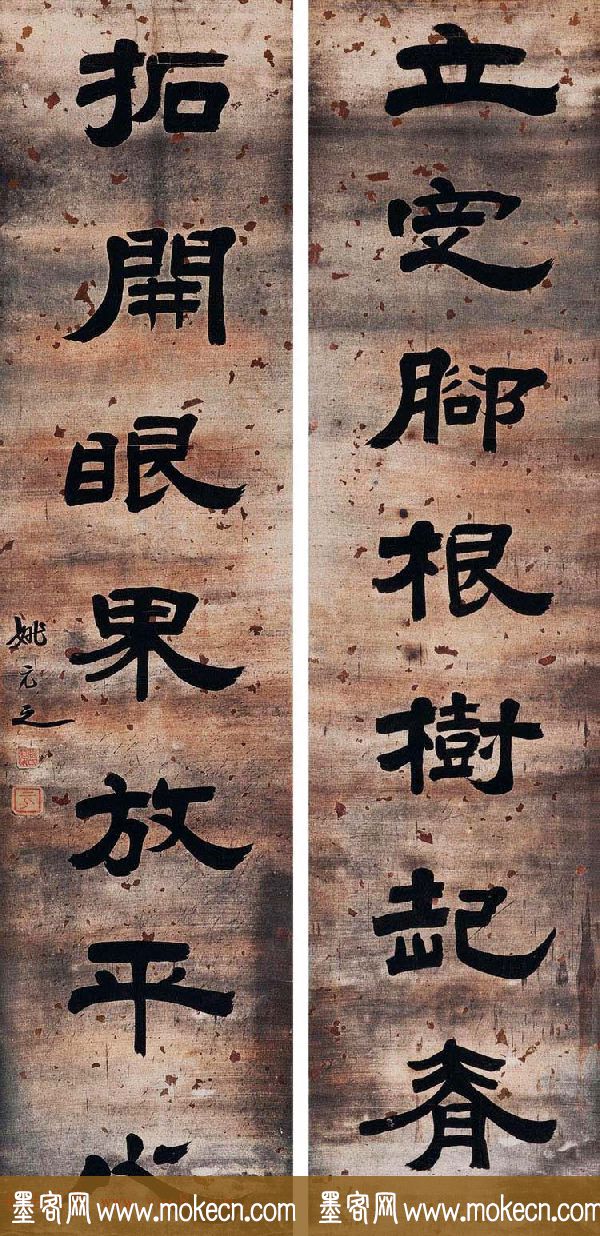 立定腳根樹起脊
拓開眼界放平心
姚元之
墨客网 www.mokecn.com
墨客网 www.mokecn.com